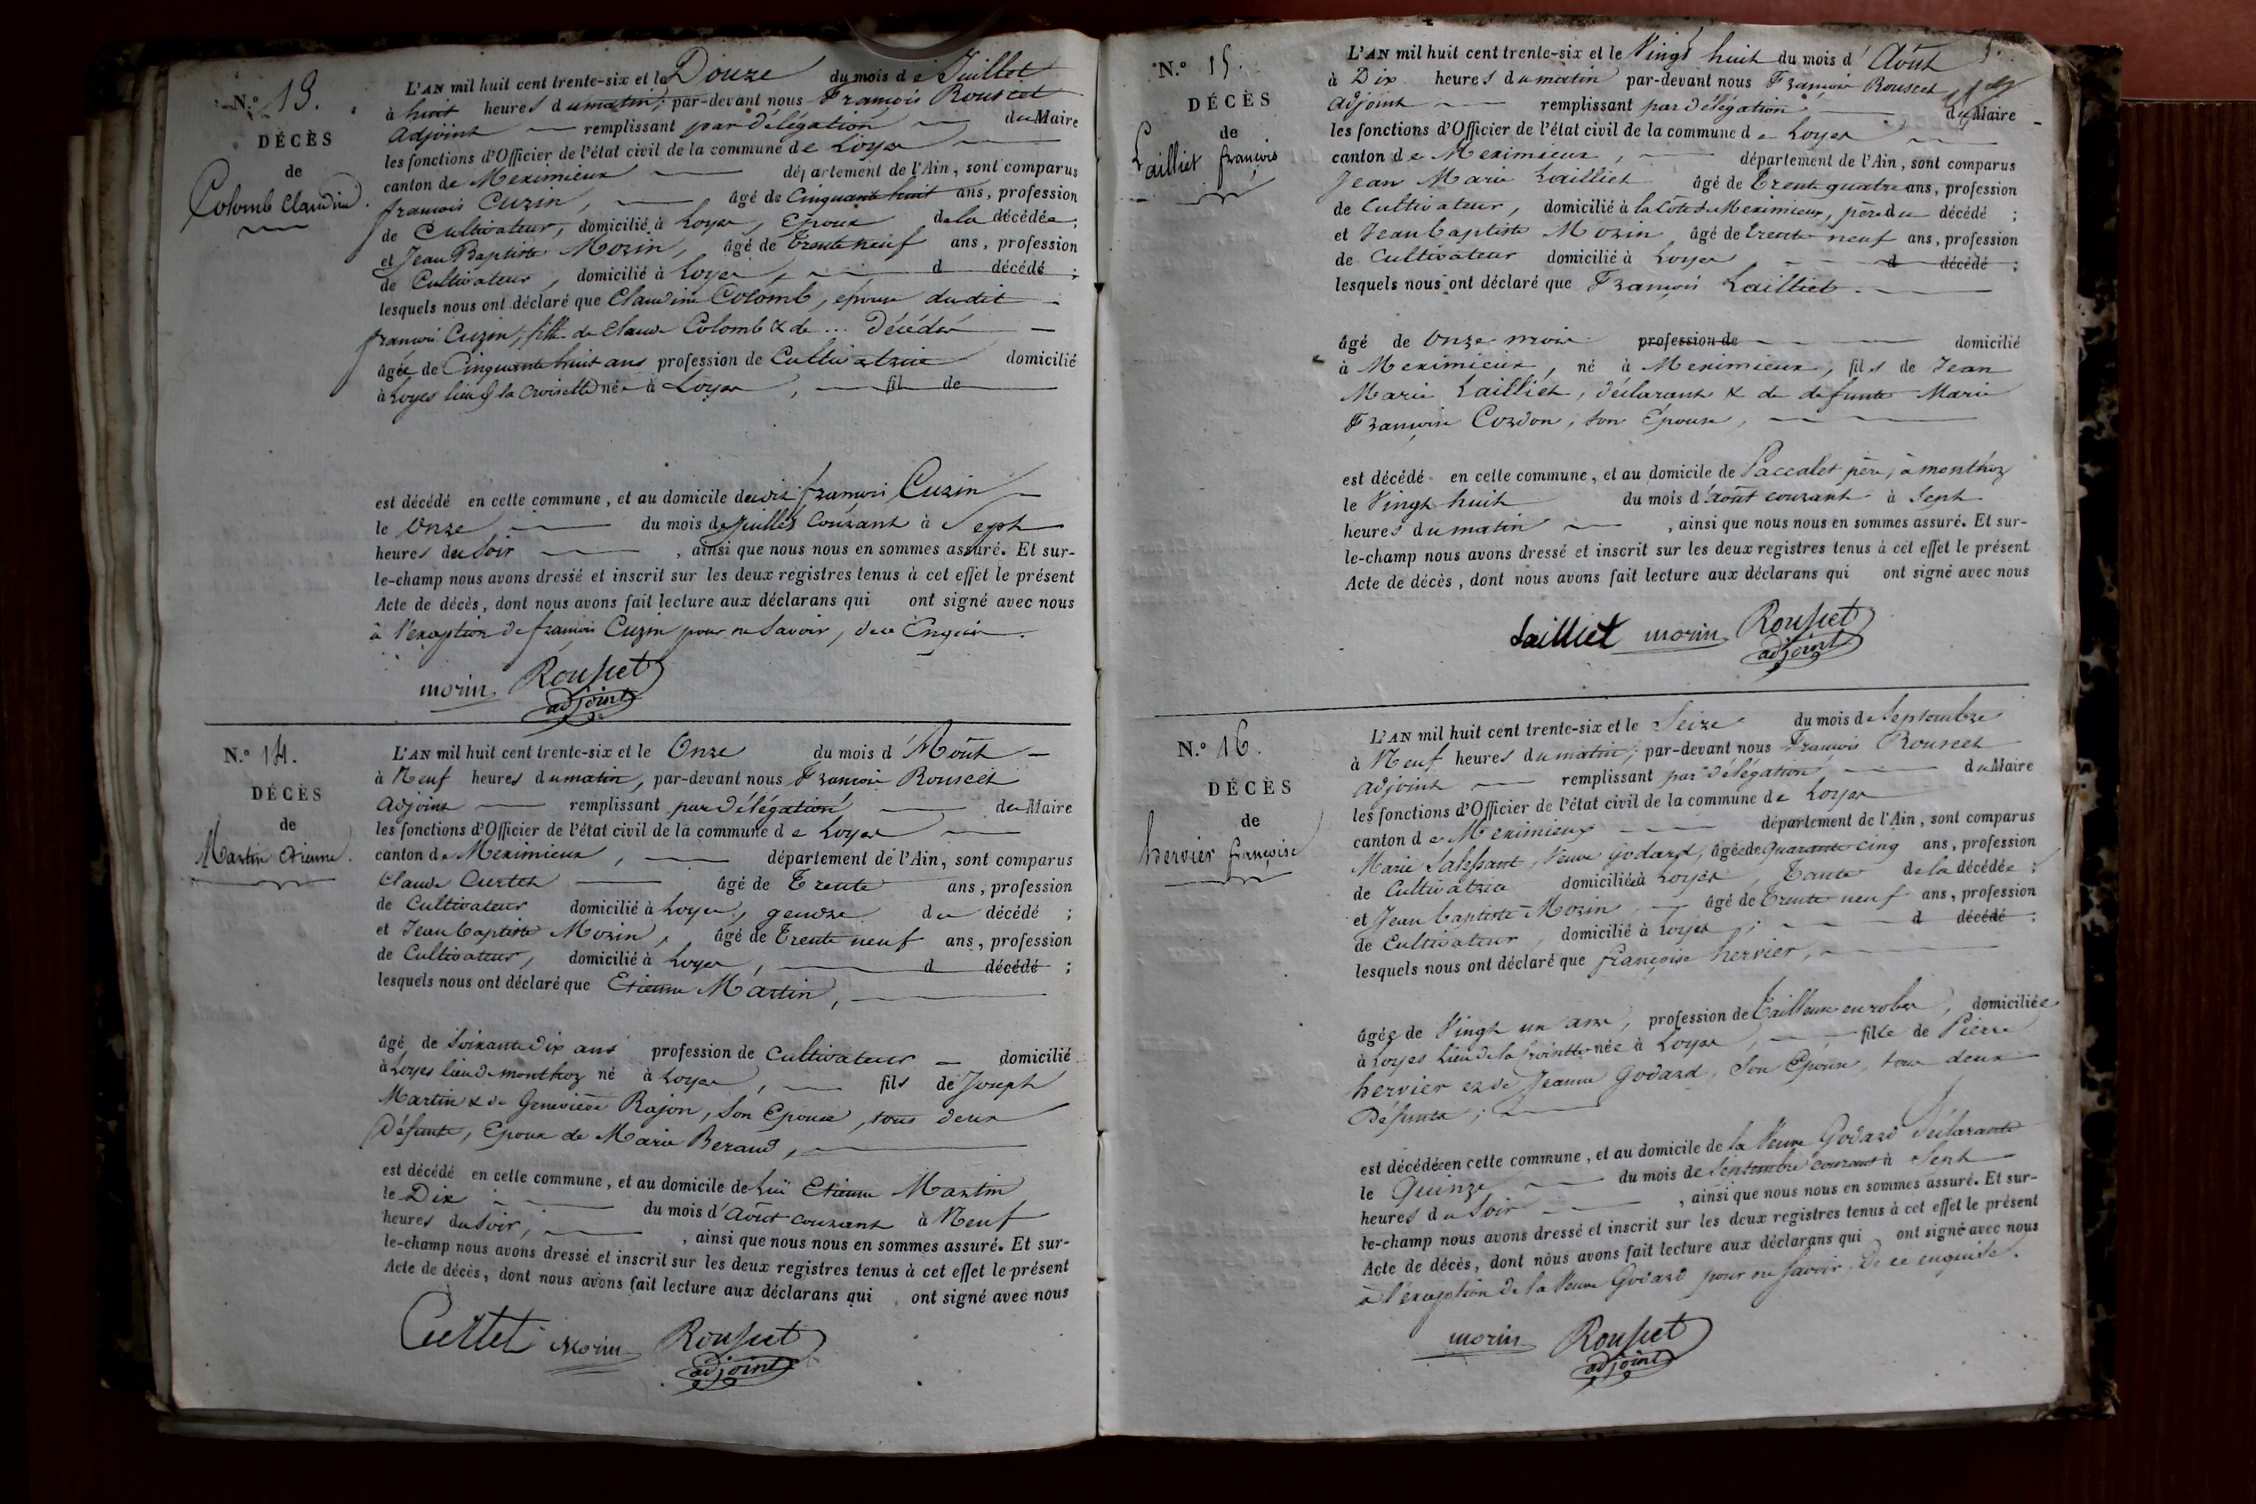 N.º 13.
DÉCÈS
de
Colomb Claudine.
L'AN mil huit cent trente-six et le Douze du mois de Juillet
à huit heures du matin, par-devant nous François Rousset
adjoint remplissant par délégation du Maire
les fonctions d'Officier de l'état civil de la commune de Loyes
canton de Meximieux département de l'Ain, sont comparus
françois Cuzin, âgé de Cinquante huit ans, profession
de Cultivateur, domicilié à Loyes, Epoux de la décédée;
et Jean Baptiste Morin, âgé de Trente neuf ans, profession
de Cultivateur, domicilié à Loyes, d décédé;
lesquels nous ont déclaré que Claudine Colomb, épouse dudit
françois Cuzin, fille de Claude Colomb & de ... Décédés
âgée de Cinquante huit ans profession de Cultivatrice domicilié
à Loyes lieu de la Croisette née à Loyes, fil de
est décédé en cette commune, et au domicile dudit françois Cuzin
le Onze du mois de Juillet Courant à Sept
heures du Soir, ainsi que nous nous en sommes assuré. Et sur-
le-champ nous avons dressé et inscrit sur les deux registres tenus à cet effet le présent
Acte de décès, dont nous avons fait lecture aux déclarans qui ont signé avec nous
à l'exception de françois Cuzin pour ne Savoir, de ce Enquis.
morin Rousset
adjoint
N.º 14.
DÉCÈS
de
Martin Etienne.
L'AN mil huit cent trente-six et le Onze du mois d'Août
à Neuf heures du matin, par-devant nous François Rousset
Adjoint remplissant par délégation du Maire
les fonctions d'Officier de l'état civil de la commune de Loyes
canton de Meximieux, département de l'Ain, sont comparus
Claude Curtet âgé de Trente ans, profession
de Cultivateur domicilié à Loyes, gendre du décédé;
et Jean baptiste Morin, âgé de Trente neuf ans, profession
de Cultivateur, domicilié à Loyes, d décédé;
lesquels nous ont déclaré que Etienne Martin,
âgé de Soixante dix ans profession de Cultivateur domicilié
à Loyes lieu de monthoz né à Loyes, fils de Joseph
Martin & de Geneviève Rajon, Son Epouse, tous deux
Défunts, Epoux de Marie Beraud,
est décédé en cette commune, et au domicile de Lui Etienne Martin
le Dix du mois d'Août courant à Neuf
heures du Soir, ainsi que nous nous en sommes assuré. Et sur-
le-champ nous avons dressé et inscrit sur les deux registres tenus à cet effet le présent
Acte de décès, dont nous avons fait lecture aux déclarans qui ont signé avec nous
Curtet morin Rousset
adjoint
N.º 15.
DÉCÈS
de
Lailliet françois
L'AN mil huit cent trente-six et le Vingt huit du mois d'Août
à Dix heures du matin par-devant nous François Rousset
adjoint remplissant par délégation du Maire
les fonctions d'Officier de l'état civil de la commune de Loyes
canton de Meximieux, département de l'Ain, sont comparus
Jean Marie Lailliet âgé de Trente quatre ans, profession
de Cultivateur, domicilié à la Côte de Meximieux, père du décédé;
et Jean baptiste Morin âgé de trente neuf ans, profession
de Cultivateur domicilié à Loyes d décédé;
lesquels nous ont déclaré que François Lailliet
âgé de Onze mois profession de domicilié
à Meximieux, né à Meximieux, fils de Jean
Marie Lailliet, déclarant & de défunte Marie
Françoise Cordon, son Epouse,
est décédé en cette commune, et au domicile de Paccalet père, à monthoz
le Vingt huit du mois d'août courant à Sept
heures du matin, ainsi que nous nous en sommes assuré. Et sur-
le-champ nous avons dressé et inscrit sur les deux registres tenus à cet effet le présent
Acte de décès, dont nous avons fait lecture aux déclarans qui ont signé avec nous
Lailliet morin Rousset
adjoint
N.º 16.
DÉCÈS
de
hervier françoise
L'AN mil huit cent trente-six et le Seize du mois de Septembre
à Neuf heures du matin, par-devant nous François Rousset
adjoint remplissant par délégation du Maire
les fonctions d'Officier de l'état civil de la commune de Loyes
canton de Meximieux département de l'Ain, sont comparus
Marie, Veuve Godard, âgée de quarante cinq ans, profession
de Cultivatrice domiciliée à Loyes, Tante de la décédée;
et Jean baptiste Morin, âgé de Trente neuf ans, profession
de Cultivateur, domicilié à Loyes, d décédé;
lesquels nous ont déclaré que françoise hervier,
âgée de Vingt un ans, profession de Tailleuse en robes, domiciliée
à Loyes lieu de la Croisette née à Loyes, fille de Pierre
hervier et de Jeanne Godard, Son Epouse, tous deux
Défunts,
est décédée en cette commune, et au domicile de la Veuve Godard Déclarante
le Quinze du mois de Septembre courant à Sept
heures du Soir, ainsi que nous nous en sommes assuré. Et sur-
le-champ nous avons dressé et inscrit sur les deux registres tenus à cet effet le présent
Acte de décès, dont nous avons fait lecture aux déclarans qui ont signé avec nous
à l'exception de la Veuve Godard pour ne Savoir, de ce enquise.
morin Rousset
adjoint